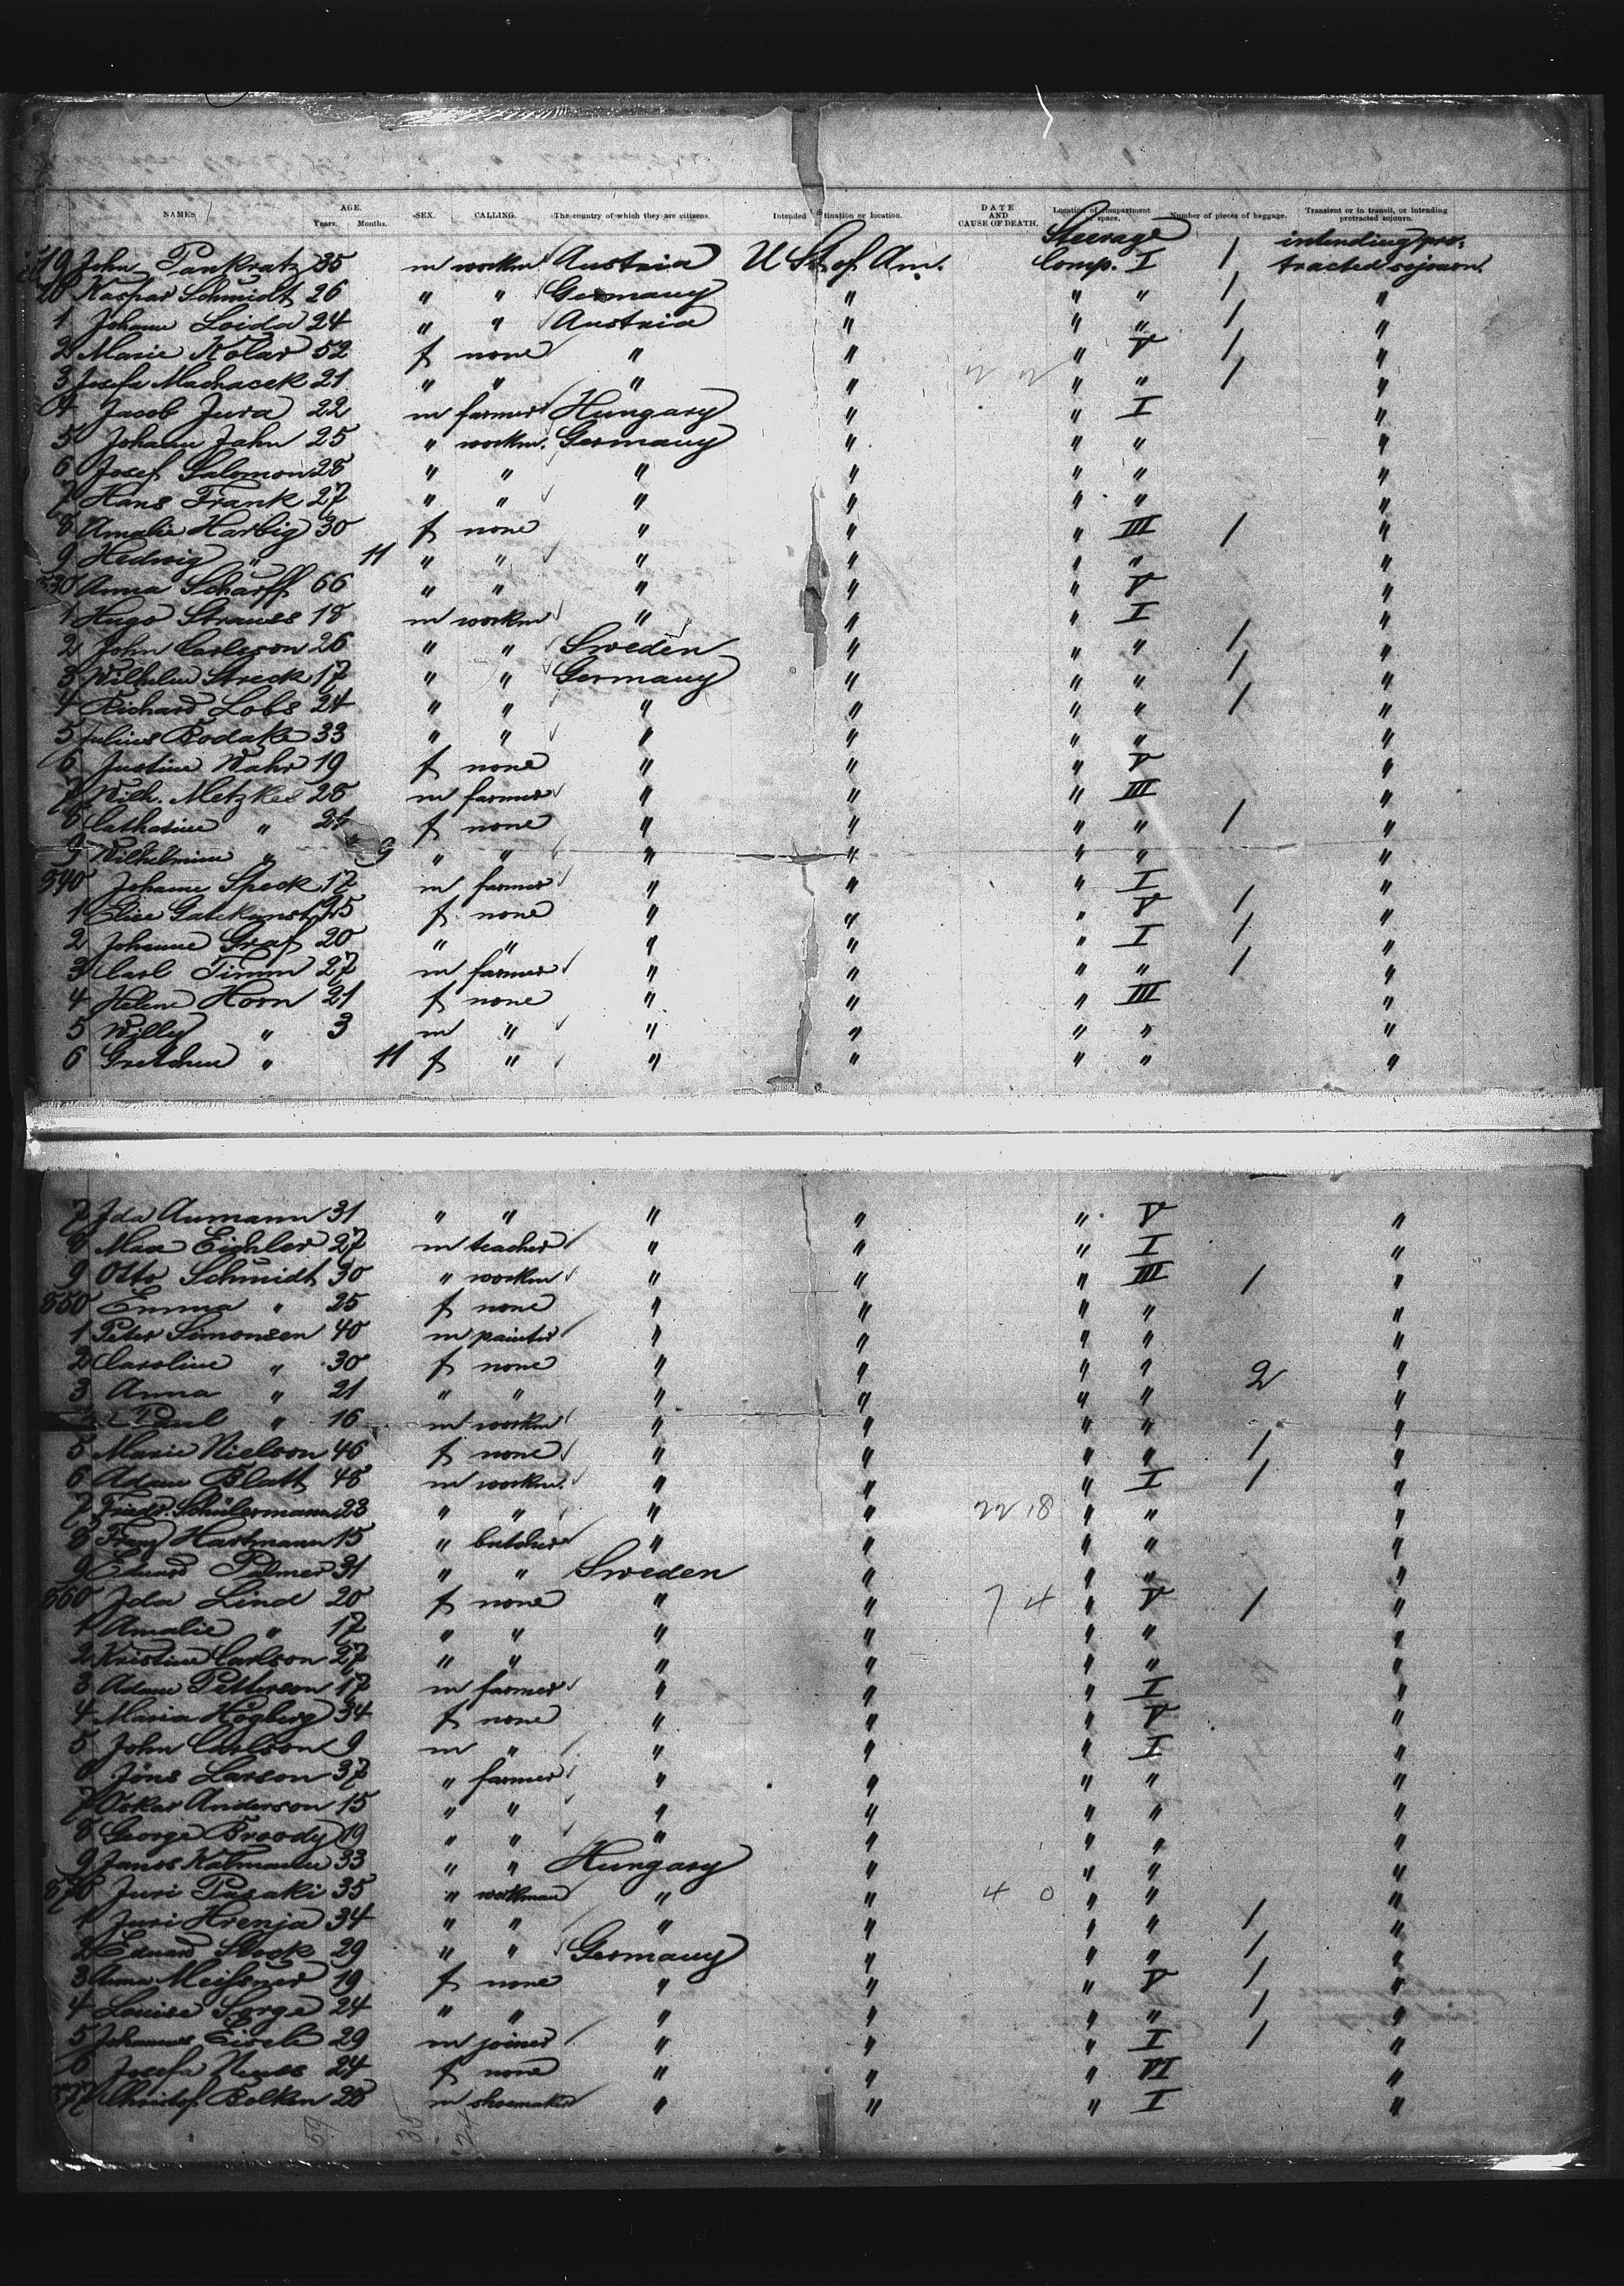 NAMES AGE. Years. Months. SEX. CALLING. The country of which they are citizens. Intended destination or location. DATE AND CAUSE OF DEATH. Location of compartment or space. Number of pieces of baggage. Transient or in transit, or intending protracted sojourn.
Steerage intending pro-
519 John Pankratz 35 m workm Austria U St of Am. Comp. I 1 tracted sojourn.
20 Kaspar Schmidt 26 " " Germany " " " 1 "
1 Johann Loida 24 " " Austria " " " 1 "
2 Marie Kolar 52 f none " " " V 1 "
3 Josefa Machacek 21 " " " " " " 1 "
4 Jacob Jura 22 m farmer Hungary " " I "
5 Johann Jahn 25 " workm. Germany " " " "
6 Josef Salomon 28 " " " " " " "
7 Hans Frank 27 " " " " " " "
8 Amalie Harbig 30 f none " " " III 1 "
9 Hedwig " 11 " " " " " " "
530 Anna Scharff 66 " " " " " V "
1 Hugo Strauss 18 m workm " " " I "
2 John Carlsson 26 " " Sweden " " " 1 "
3 Wilhelm Streck 17 " " Germany " " " 1 "
4 Richard Lobs 24 " " " " " " 1 "
5 Julius Bodake 33 " " " " " " "
6 Justine Wahr 19 f none " " " V "
7 Wilh. Metzkes 28 m farmer " " " III "
8 Catharine " 24 f none " " " " 1 "
9 Wilhelmine " 9 " " " " " " "
540 Johann Speck 17 m farmer " " " I "
1 Elise Gutekunst 25 f none " " " V 1 "
2 Johanne Graf 20 " " " " " I 1 "
3 Carl Timm 27 m farmer " " " " 1 "
4 Helene Horn 21 f none " " " III "
5 Willy " 3 m " " " " " "
6 Gretchen " 11 f " " " " " "
7 Ida Aumann 31 " " " " " V "
8 Max Eichler 27 m teacher " " " I "
9 Otto Schmidt 30 " workm " " " III 1 "
550 Emma " 25 f none " " " " "
1 Peter Simonsen 40 m painter " " " " "
2 Caroline " 30 f none " " " " 2 "
3 Anna " 21 " " " " " " "
Paul " 16 m workm " " " " "
5 Marie Nielson 46 f none " " " " 1 "
6 Adam Blatt 48 m workm. " " " I 1 "
7 Friedr. Schülermann 23 " " " " 22 18 " " "
8 Franz Hartmann 15 " butcher " " " " "
9 Eduard Palmer 31 " " Sweden " " " "
560 Ida Lind 20 f none " " 7 4 " V 1 "
1 Amalie " 17 " " " " " " "
2 Kristine Carlson 27 " " " " " " "
3 Adam Petterson 17 m farmer " " " I "
4 Maria Högberg 34 f none " " " V "
5 John Carlson 9 m " " " " I "
6 Jöns Larson 37 " farmer " " " " "
7 Oskar Anderson 15 " " " " " " "
8 George Broody 19 " " " " " " "
9 Janos Kalmann 33 " " Hungary " " " "
570 Juri Pasaki 35 " workman " " 4 0 " " "
1 Juri Hrenja 34 " " " " " " 1 "
2 Eduard Stock 29 " " Germany " " " 1 "
3 Anna Meissner 19 f none " " " V 1 "
4 Louise Sorge 24 " " " " " " 1 "
5 Johannes Eisele 29 m joiner " " " I 1 "
6 Josefa Neuss 24 f none " " " VI "
577 Christof Bolken 28 m shoemaker " " " I "
59 35 24